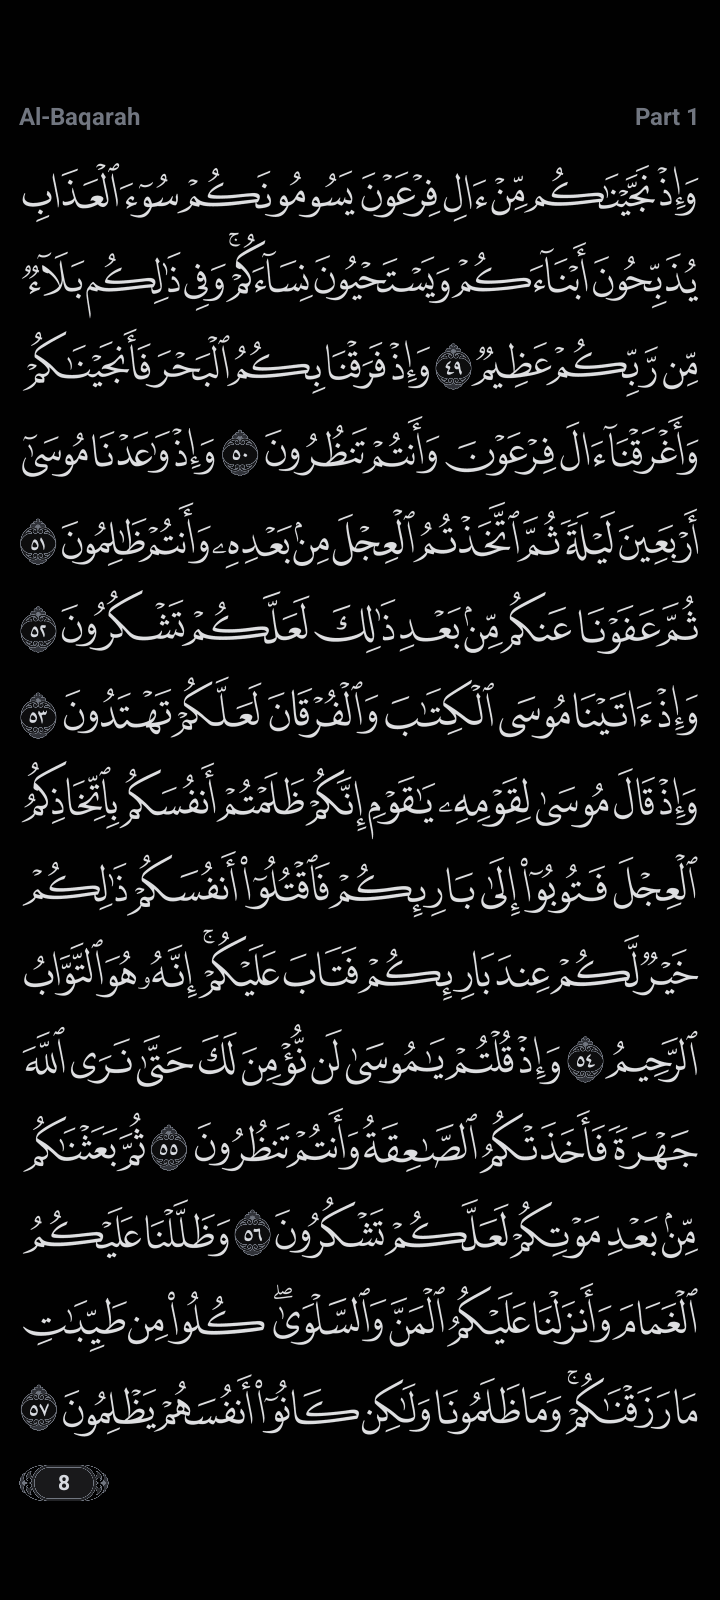 Al-Baqarah
Part 1
وَإِذْ نَجَّيْنَـٰكُم مِّنْ ءَالِ فِرْعَوْنَ يَسُومُونَكُمْ سُوٓءَ ٱلْعَذَابِ
يُذَبِّحُونَ أَبْنَآءَكُمْ وَيَسْتَحْيُونَ نِسَآءَكُمْ ۚ وَفِى ذَٰلِكُم بَلَآءٌ
مِّن رَّبِّكُمْ عَظِيمٌ ٤٩ وَإِذْ فَرَقْنَا بِكُمُ ٱلْبَحْرَ فَأَنجَيْنَـٰكُمْ
وَأَغْرَقْنَآ ءَالَ فِرْعَوْنَ وَأَنتُمْ تَنظُرُونَ ٥٠ وَإِذْ وَٰعَدْنَا مُوسَىٰٓ
أَرْبَعِينَ لَيْلَةً ثُمَّ ٱتَّخَذْتُمُ ٱلْعِجْلَ مِنۢ بَعْدِهِۦ وَأَنتُمْ ظَـٰلِمُونَ ٥١
ثُمَّ عَفَوْنَا عَنكُم مِّنۢ بَعْدِ ذَٰلِكَ لَعَلَّكُمْ تَشْكُرُونَ ٥٢
وَإِذْ ءَاتَيْنَا مُوسَى ٱلْكِتَـٰبَ وَٱلْفُرْقَانَ لَعَلَّكُمْ تَهْتَدُونَ ٥٣
وَإِذْ قَالَ مُوسَىٰ لِقَوْمِهِۦ يَـٰقَوْمِ إِنَّكُمْ ظَلَمْتُمْ أَنفُسَكُم بِٱتِّخَاذِكُمُ
ٱلْعِجْلَ فَتُوبُوٓا۟ إِلَىٰ بَارِئِكُمْ فَٱقْتُلُوٓا۟ أَنفُسَكُمْ ذَٰلِكُمْ
خَيْرٌ لَّكُمْ عِندَ بَارِئِكُمْ فَتَابَ عَلَيْكُمْ ۚ إِنَّهُۥ هُوَ ٱلتَّوَّابُ
ٱلرَّحِيمُ ٥٤ وَإِذْ قُلْتُمْ يَـٰمُوسَىٰ لَن نُّؤْمِنَ لَكَ حَتَّىٰ نَرَى ٱللَّهَ
جَهْرَةً فَأَخَذَتْكُمُ ٱلصَّـٰعِقَةُ وَأَنتُمْ تَنظُرُونَ ٥٥ ثُمَّ بَعَثْنَـٰكُم
مِّنۢ بَعْدِ مَوْتِكُمْ لَعَلَّكُمْ تَشْكُرُونَ ٥٦ وَظَلَّلْنَا عَلَيْكُمُ
ٱلْغَمَامَ وَأَنزَلْنَا عَلَيْكُمُ ٱلْمَنَّ وَٱلسَّلْوَىٰ ۖ كُلُوا۟ مِن طَيِّبَـٰتِ
مَا رَزَقْنَـٰكُمْ ۚ وَمَا ظَلَمُونَا وَلَـٰكِن كَانُوٓا۟ أَنفُسَهُمْ يَظْلِمُونَ ٥٧
8